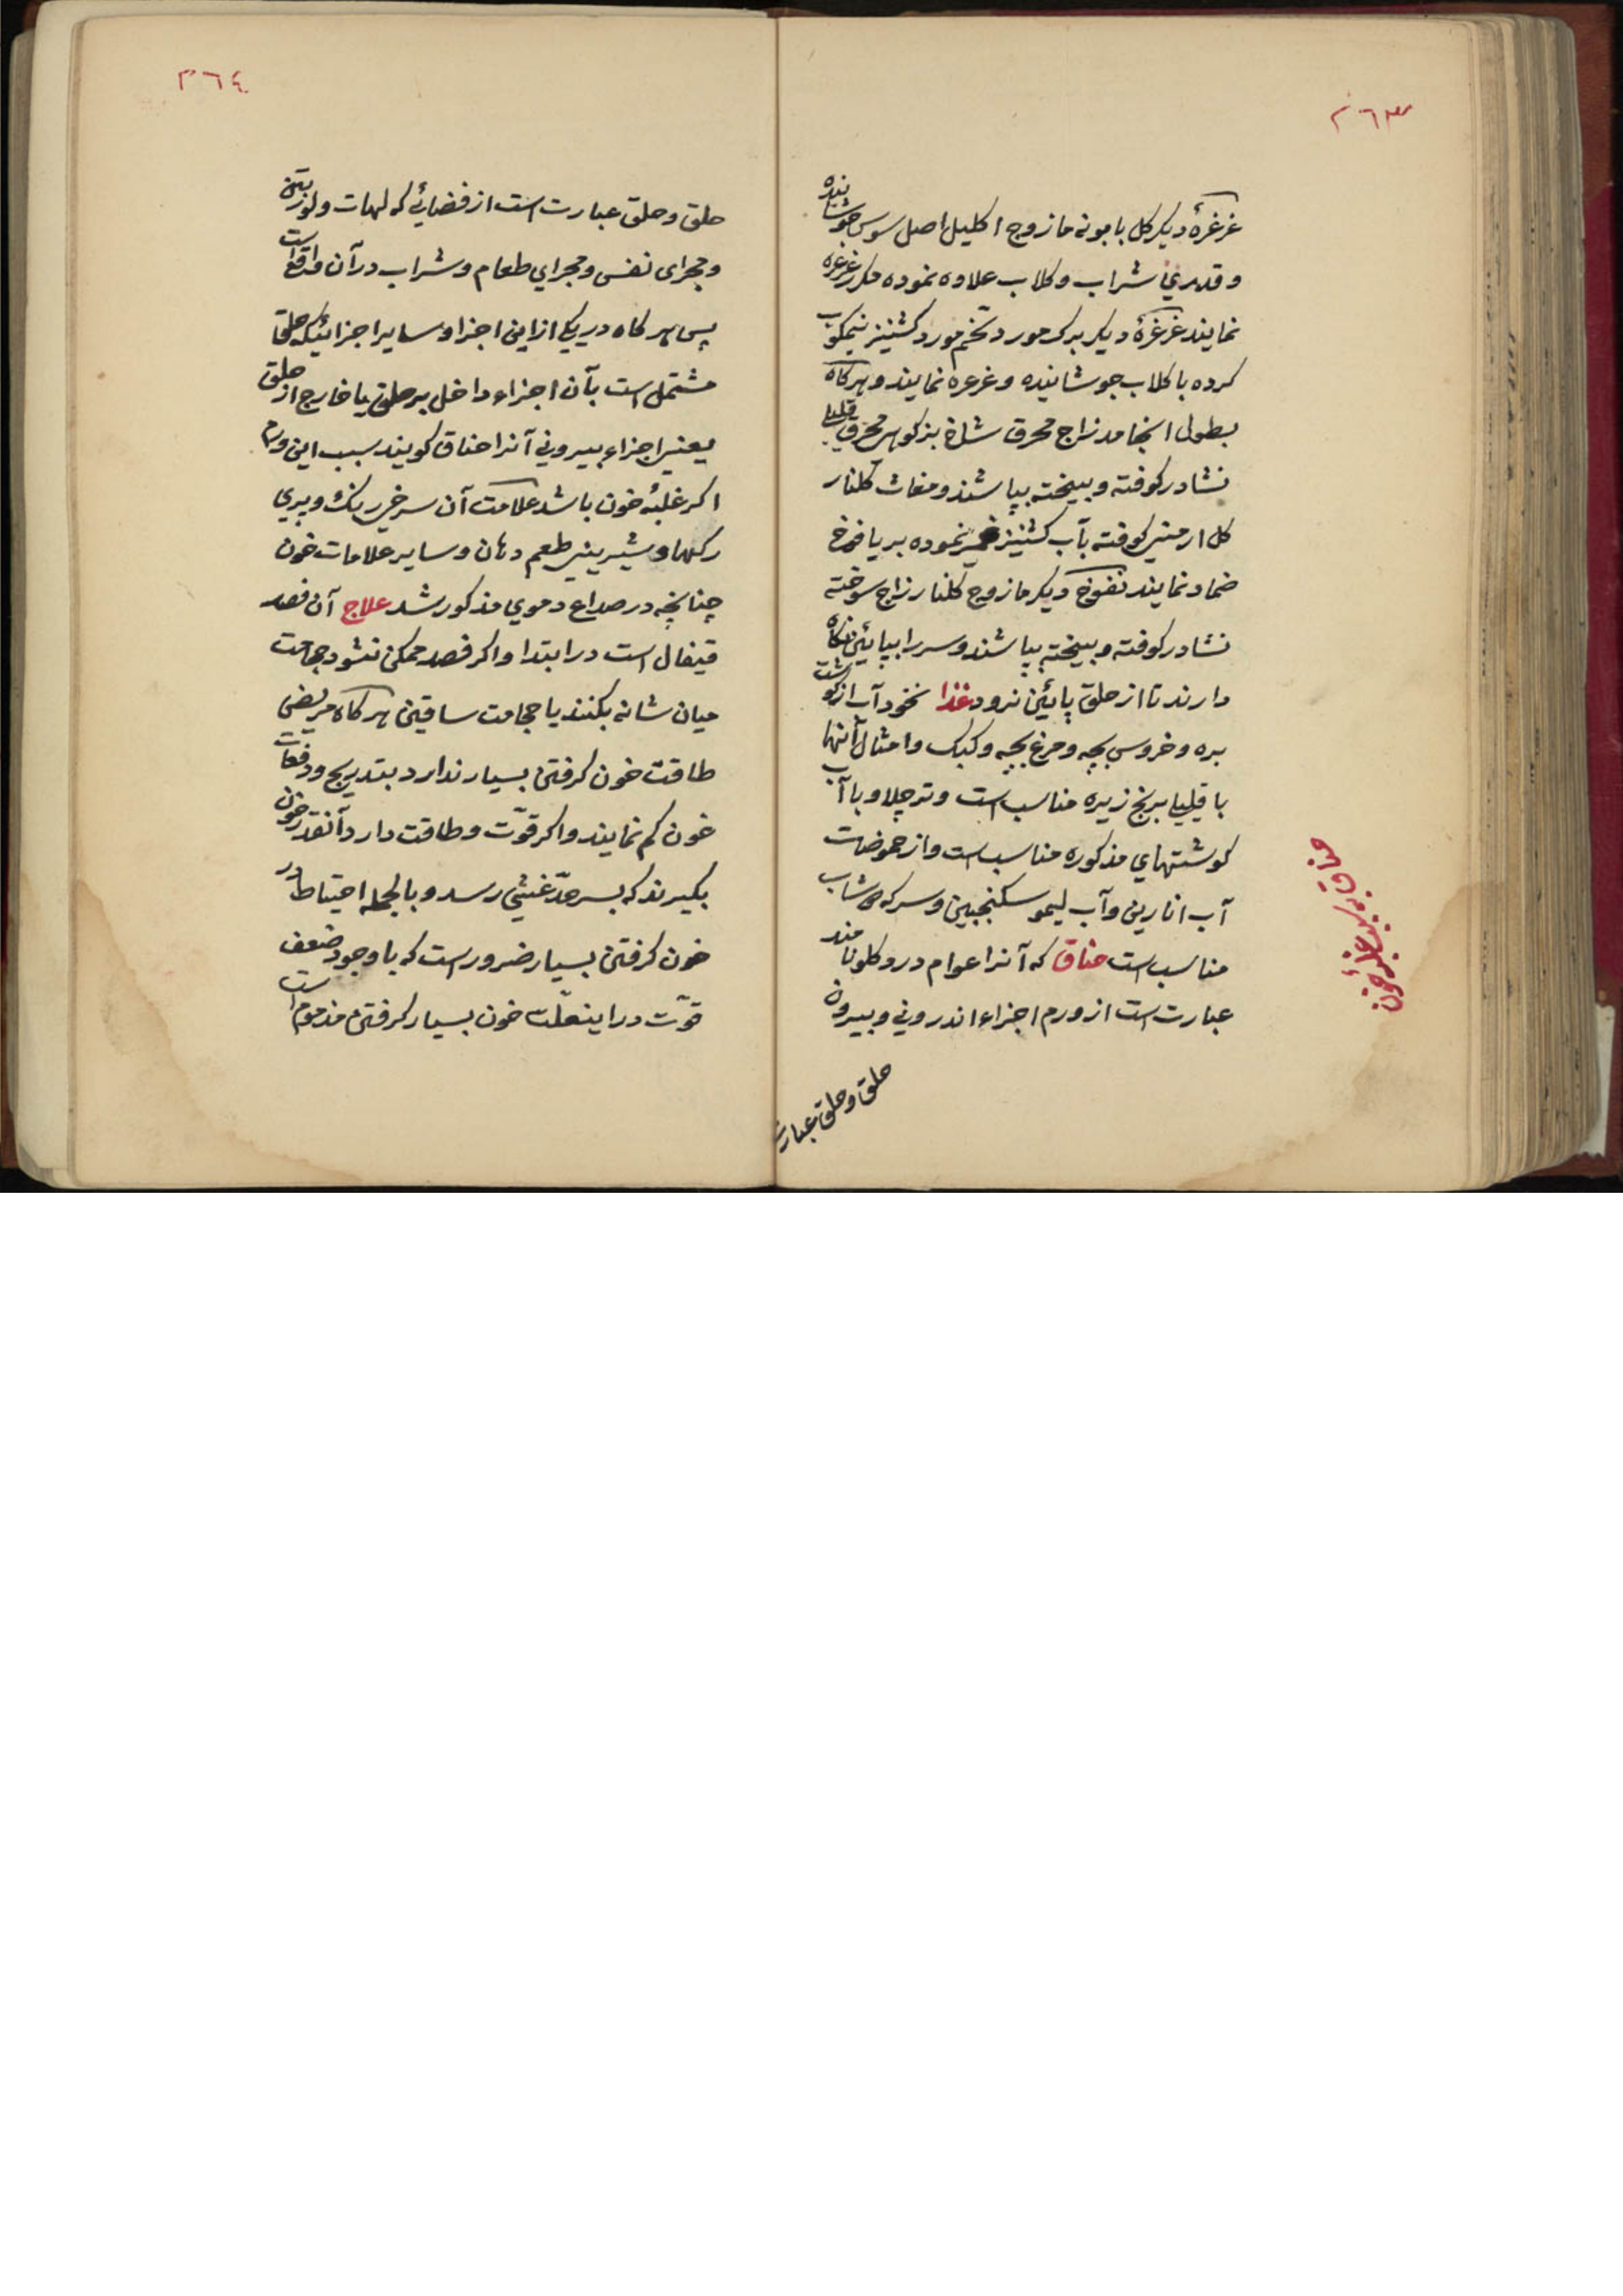 ۲۶۳
غرغرهٔ دیکر کل بابونه مازوج اکلیل اصل سوس جوشانیده
و قدری شراب و کلاب علاوه نموده مکرر غرغره
نمایند غرغرهٔ دیکر برک مورد تخم مورد کشنیز نیمکوب
کرده با کلاب جوشانیده و غرغره نمایند و هرکاه
بطول انجامد زاج محرق شاخ بزکوهی محرق قلیا
نشادر کوفته و بیخته بپاشند و مغاث کلنار
کل ارمنی کوفته بآب کشنیز خمیر نموده بر یافوخ
ضماد نمایند نفوخ دیکر مازوج کلنار زاج سوخته
نشادر کوفته و بیخته بپاشند و سر را بپائین نکاه
دارند تا از حلق پائین نرود غذا نخود آب از کوشت
بره و خروس بچه و مرغ بچه و کبک و امثال آنها
با قلیا برنج زیره مناسب است و نرچلاو با آب
کوشتهای مذکوره مناسب است و از حموضات
آب انارین و آب لیمو سکنجبین و سرکه دوشاب
مناسب است خناق که آنرا عوام درد کلو نامند
عبارت است از ورم اجزاء اندرونی و بیرون
حلق و حلق عبارت
۲۶۴
حلق و حلق عبارت است از فضائی که لهات و لوزتین
و مجرای نفس و مجرای طعام و شراب در آن واقع است
پس هرکاه در یکی از این اجزا و سایر اجزائیکه حلق
مشتمل است بآن اجزاء داخل بر حلق یا خارج از حلق
یعنی اجزاء بیرونی آنرا خناق کویند سبب این ورم
اکر غلبهٔ خون باشد علامت آن سرخی رنک و پری
رکها و شیرینی طعم دهان و سایر علامات خون
چنانچه در صداع دموی مذکور شد علاج آن فصد
قیفال است در ابتدا و اکر فصد ممکن نشود حجامت
میان شانه بکنند یا حجامت ساقین هرکاه مریض
طاقت خون کرفتن بسیار ندارد بتدریج و دفعات
خون کم نمایند و اکر قوّت و طاقت دارد آنقدر خون
بکیرند که بسر حدّ غشی رسد و بالجمله احتیاط در
خون کرفتن بسیار ضرور است که با وجود ضعف
قوّت در اینعلّت خون بسیار کرفتن مذموم است